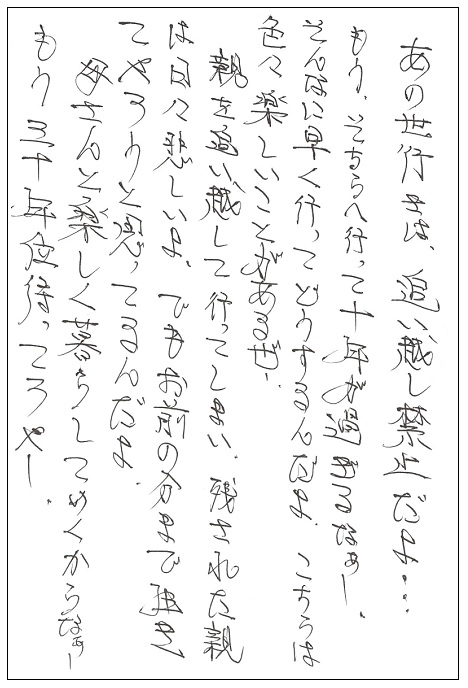 あの世行きは、追い越し禁止だよ・・・
もう、そちらへ行って十年が過ぎるなぁー。
そんなに早く行ってどうするんだよ。こちらは
色々楽しいことがあるぜ。
親を追い越して行ってしまい、残された親
は日々悲しいよ。でもお前の分まで生き
てやろうと思ってるんだよ。
母さんと楽しく暮らしてゆくからなぁー
もう三十年位待ってろやー。